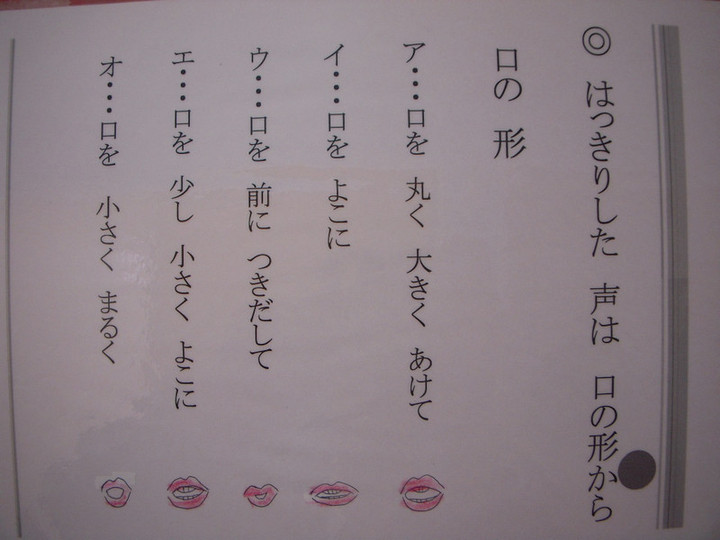 ◎ はっきりした 声は 口の形から
口の 形
ア・・・口を 丸く 大きく あけて
イ・・・口を よこに
ウ・・・口を 前に つきだして
エ・・・口を 少し 小さく よこに
オ・・・口を 小さく まるく